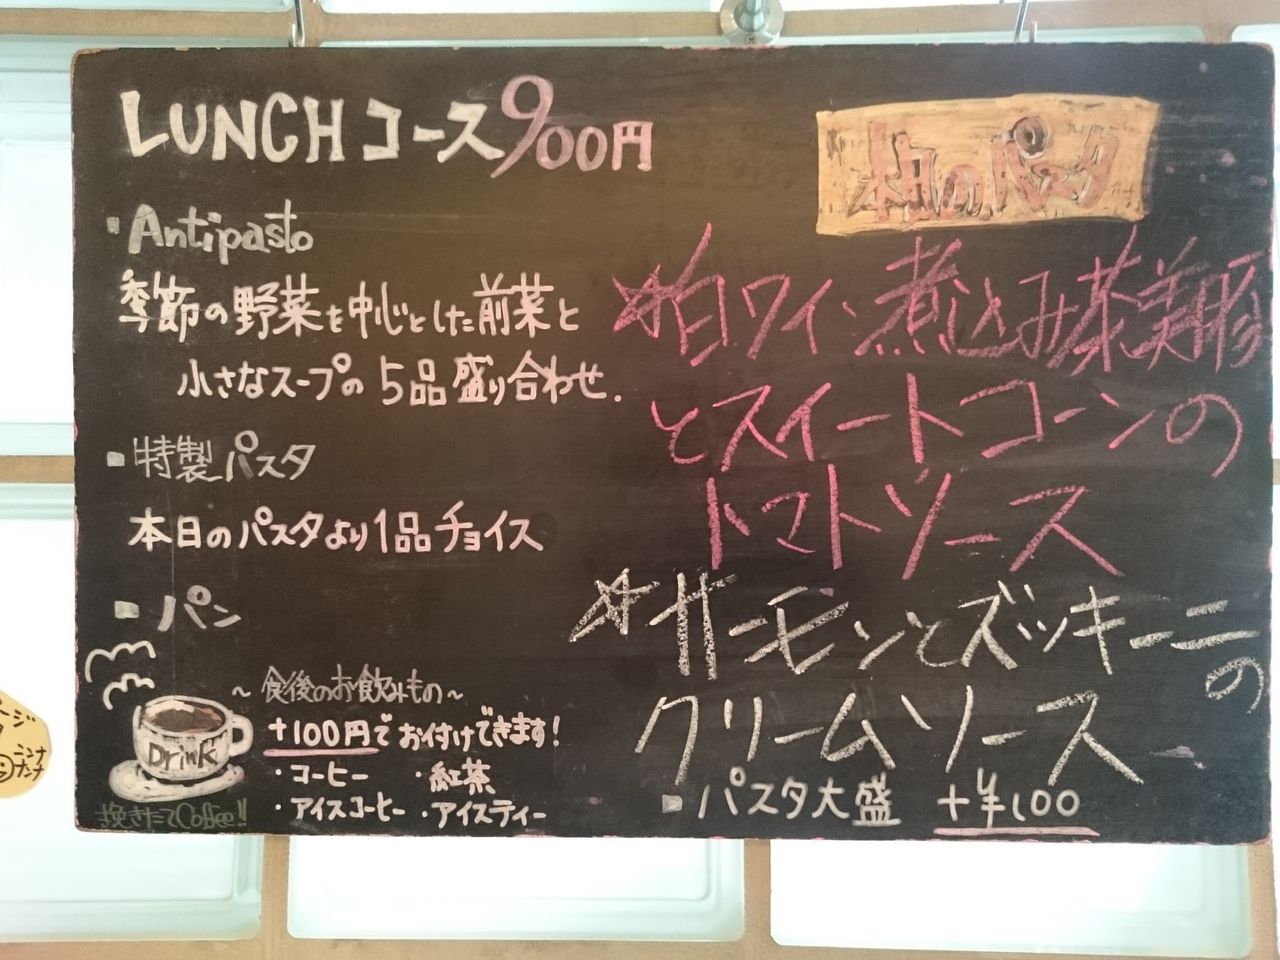 LUNCHコース900円
・Antipasto
季節の野菜を中心とした前菜と
小さなスープの5品盛り合わせ.
■特製パスタ
本日のパスタより1品チョイス
■パン
~食後のお飲みもの~
+100円でお付けできます!
・コーヒー ・紅茶
・アイスコーヒー ・アイスティー
Drink
挽きたてCoffee!!
本日のパスタ
☆白ワイン煮込み茶美豚
とスイートコーンの
トマトソース
☆サーモンとズッキーニ
の
クリームソース
■パスタ大盛 +¥100